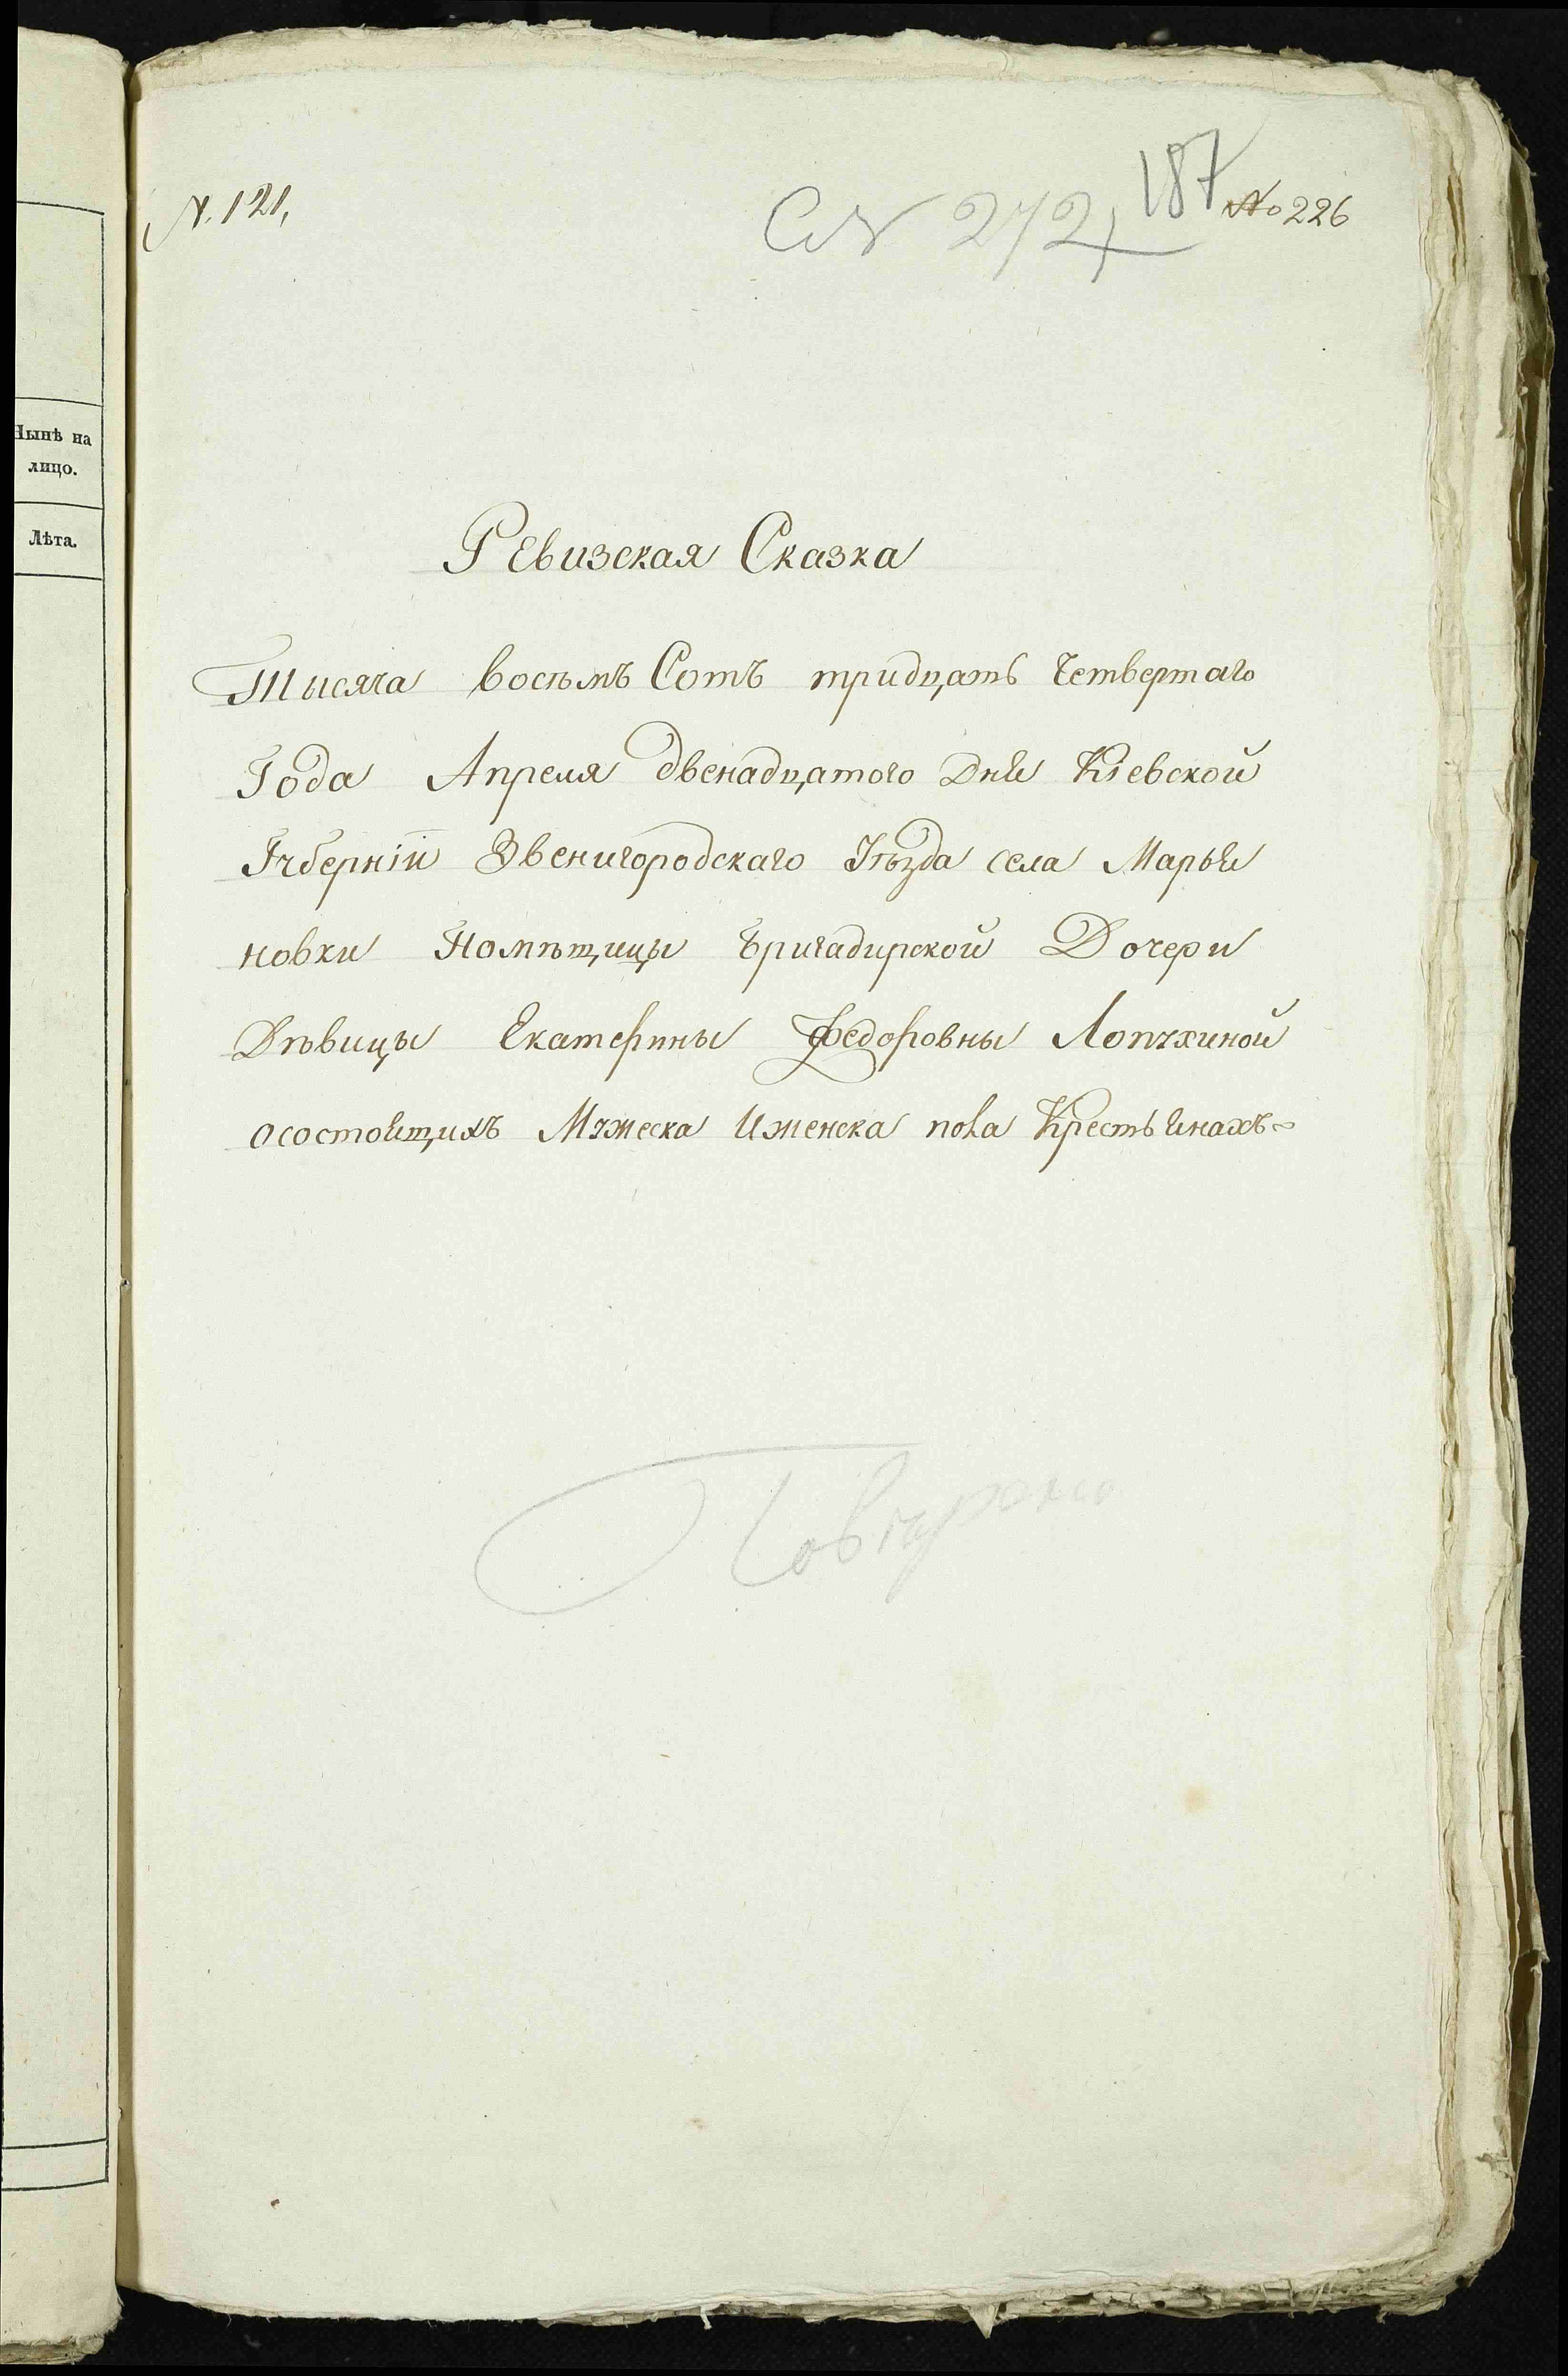 N. 121,
187
№ 226
Нынѣ на
лицо.
Лѣта.
Ревизская Сказка
Тысяча восѣмъ Сотъ тридцать Четвертаго
Года Апреля двенадцатого Дня Кіевской
Губерніи Звенигородскаго Уѣзда села Марья
новки Помѣщицы Бригадирской Дочери
Дѣвицы Екатерины Федоровны Лопухиной
осостоящихъ Мужеска Иженска пола Крестьянахъ